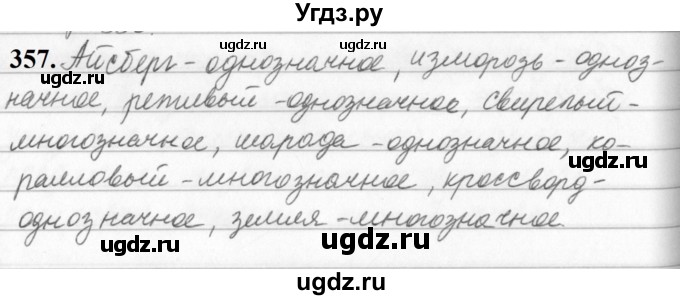 Угдз.ру
357. Айсберг - однозначное, изморозь - одноз-
начное, ретивый - однозначное, свирепый -
многозначное, шарада - однозначное, ко-
ралловый - многозначное, кроссворд -
однозначное, земля - многозначное.
ugdz.ru ugdz.ru
ugdz.ru ugdz.ru
ugdz.ru ugdz.ru
ugdz.ru ugdz.ru
ugdz.ru
ugdz.ru